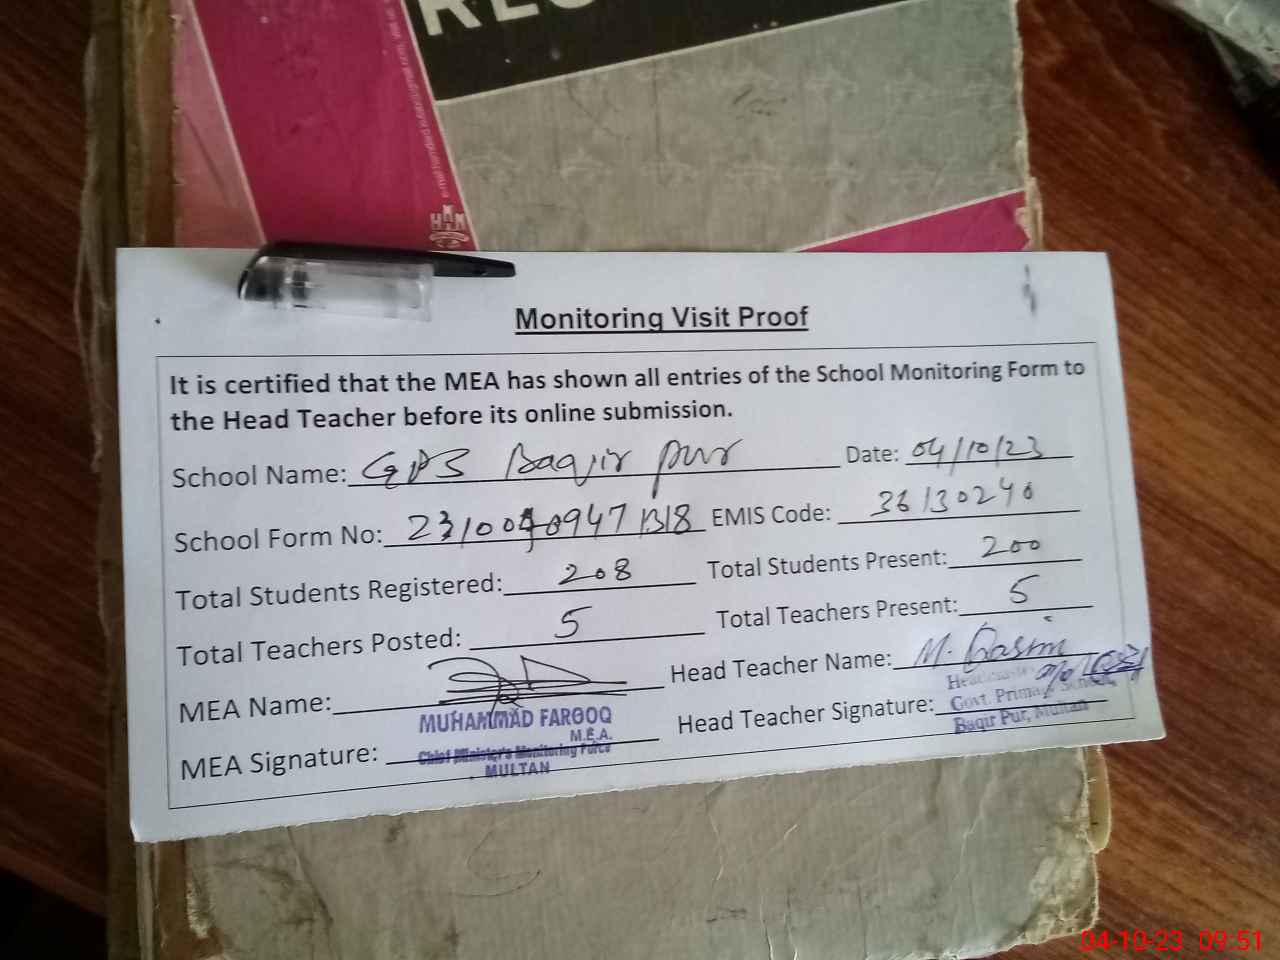 Monitoring Visit Proof
It is certified that the MEA has shown all entries of the School Monitoring Form to
the Head Teacher before its online submission.
School Name: GPS Baqir pur Date: 04/10/23
School Form No: EMIS Code: 36130240
Total Students Registered: 208 Total Students Present: 200
Total Teachers Posted: 5 Total Teachers Present: 5
MEA Name: Head Teacher Name: M.
MUHAMMAD FAROOQ
M.E.A.
Chief Minister's Monitoring Force
MULTAN
MEA Signature: Head Teacher Signature:
Govt. Primary School,
Baqir Pur, Multan
04-10-23 09:51